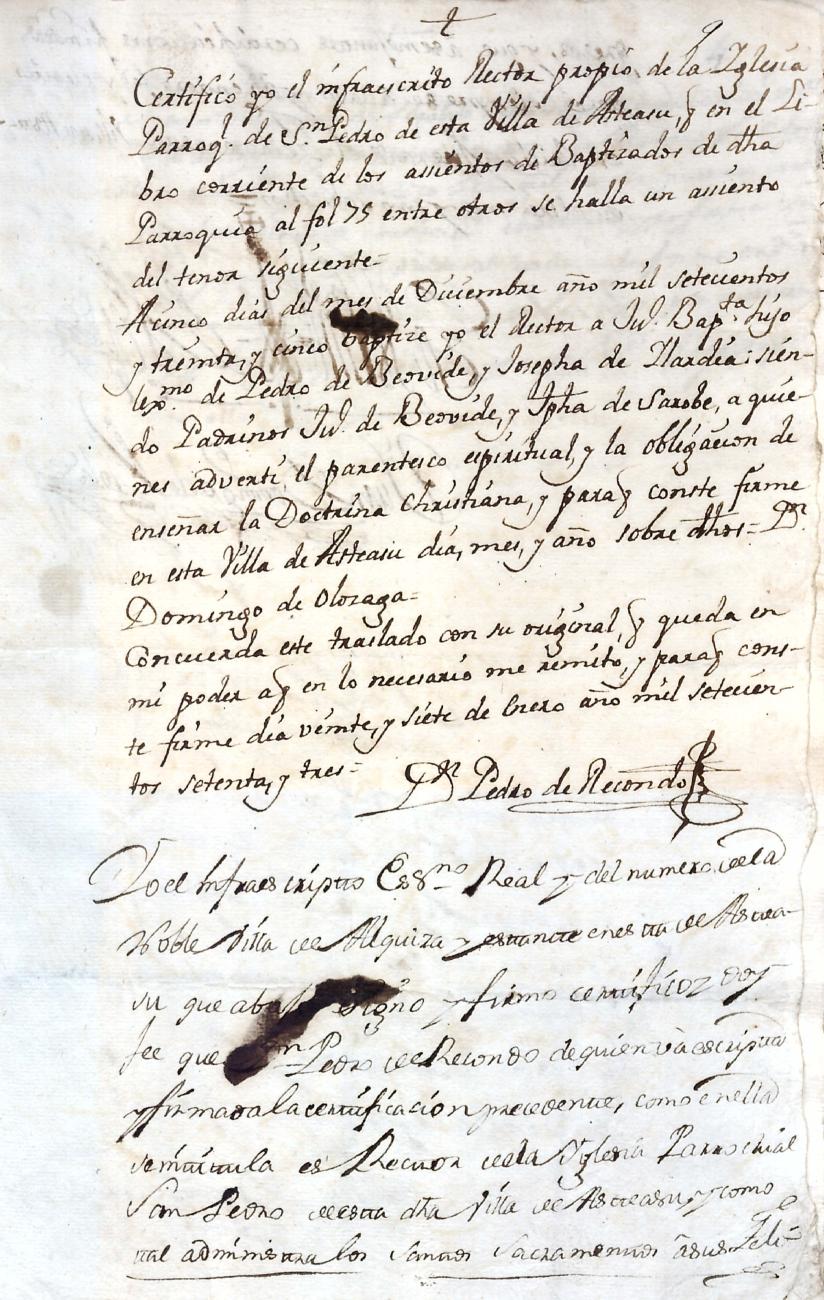 Certifico yo el infraescrito Rector propio de la Iglesia
Parroql. de Sn. Pedro de esta Villa de Asteasu, q en el Li-
bro corriente de los assientos de Baptizados de dha
Parroquia al fol 75 entre otros se halla un assiento
del tenor siguiente=
A cinco dias del mes de Diciembre año mil setecientos
y treinta, y cinco baptize yo el Rector a Jul. Bapta. hijo
lexmo. de Pedro de Beovide, y Josepha de Ilardia: sien-
do Padrinos Jul. de Beovide, y Jpha de Sarobe, a quie-
nes advertí el parentesco espiritual, y la obligacion de
enseñar la Doctrina Christiana, y para q conste firme
en esta Villa de Asteasu dia, mes, y año sobre dhos= Dn.
Domingo de Olozaga=
Concuerda este traslado con su original, q queda en
mi poder a q en lo necesario me remito, y para q cons-
te firme dia veinte, y siete de Enero año mil setecien-
tos setenta, y tres=
Dn Pedro de Recondo
Yo el Infraescripto Essno Real y del numero de la
Noble Villa de Alquiza y estante en esta de Astea-
su que abajo signo y firmo certifico y doy
fee que Dn Pedro de Recondo de quien và escripta
y firmada la certificacion precedente, como en ella
se intitula es Rector de la Yglesia Parrochial
San Pedro de esta dha Villa de Asteasu, y como
tal administra los Santos Sacramentos â sus Feli-